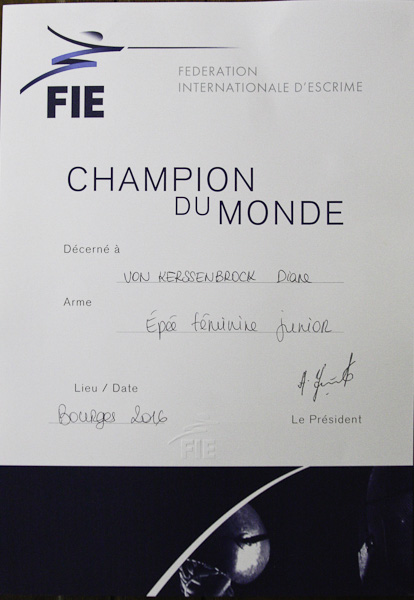 FIE
FEDERATION
INTERNATIONALE D'ESCRIME
CHAMPION
DU MONDE
Décerné à
VON KERSSENBROCK Diane
Arme
Épée féminine junior
Lieu / Date
Bourges 2016
Le Président
FIE